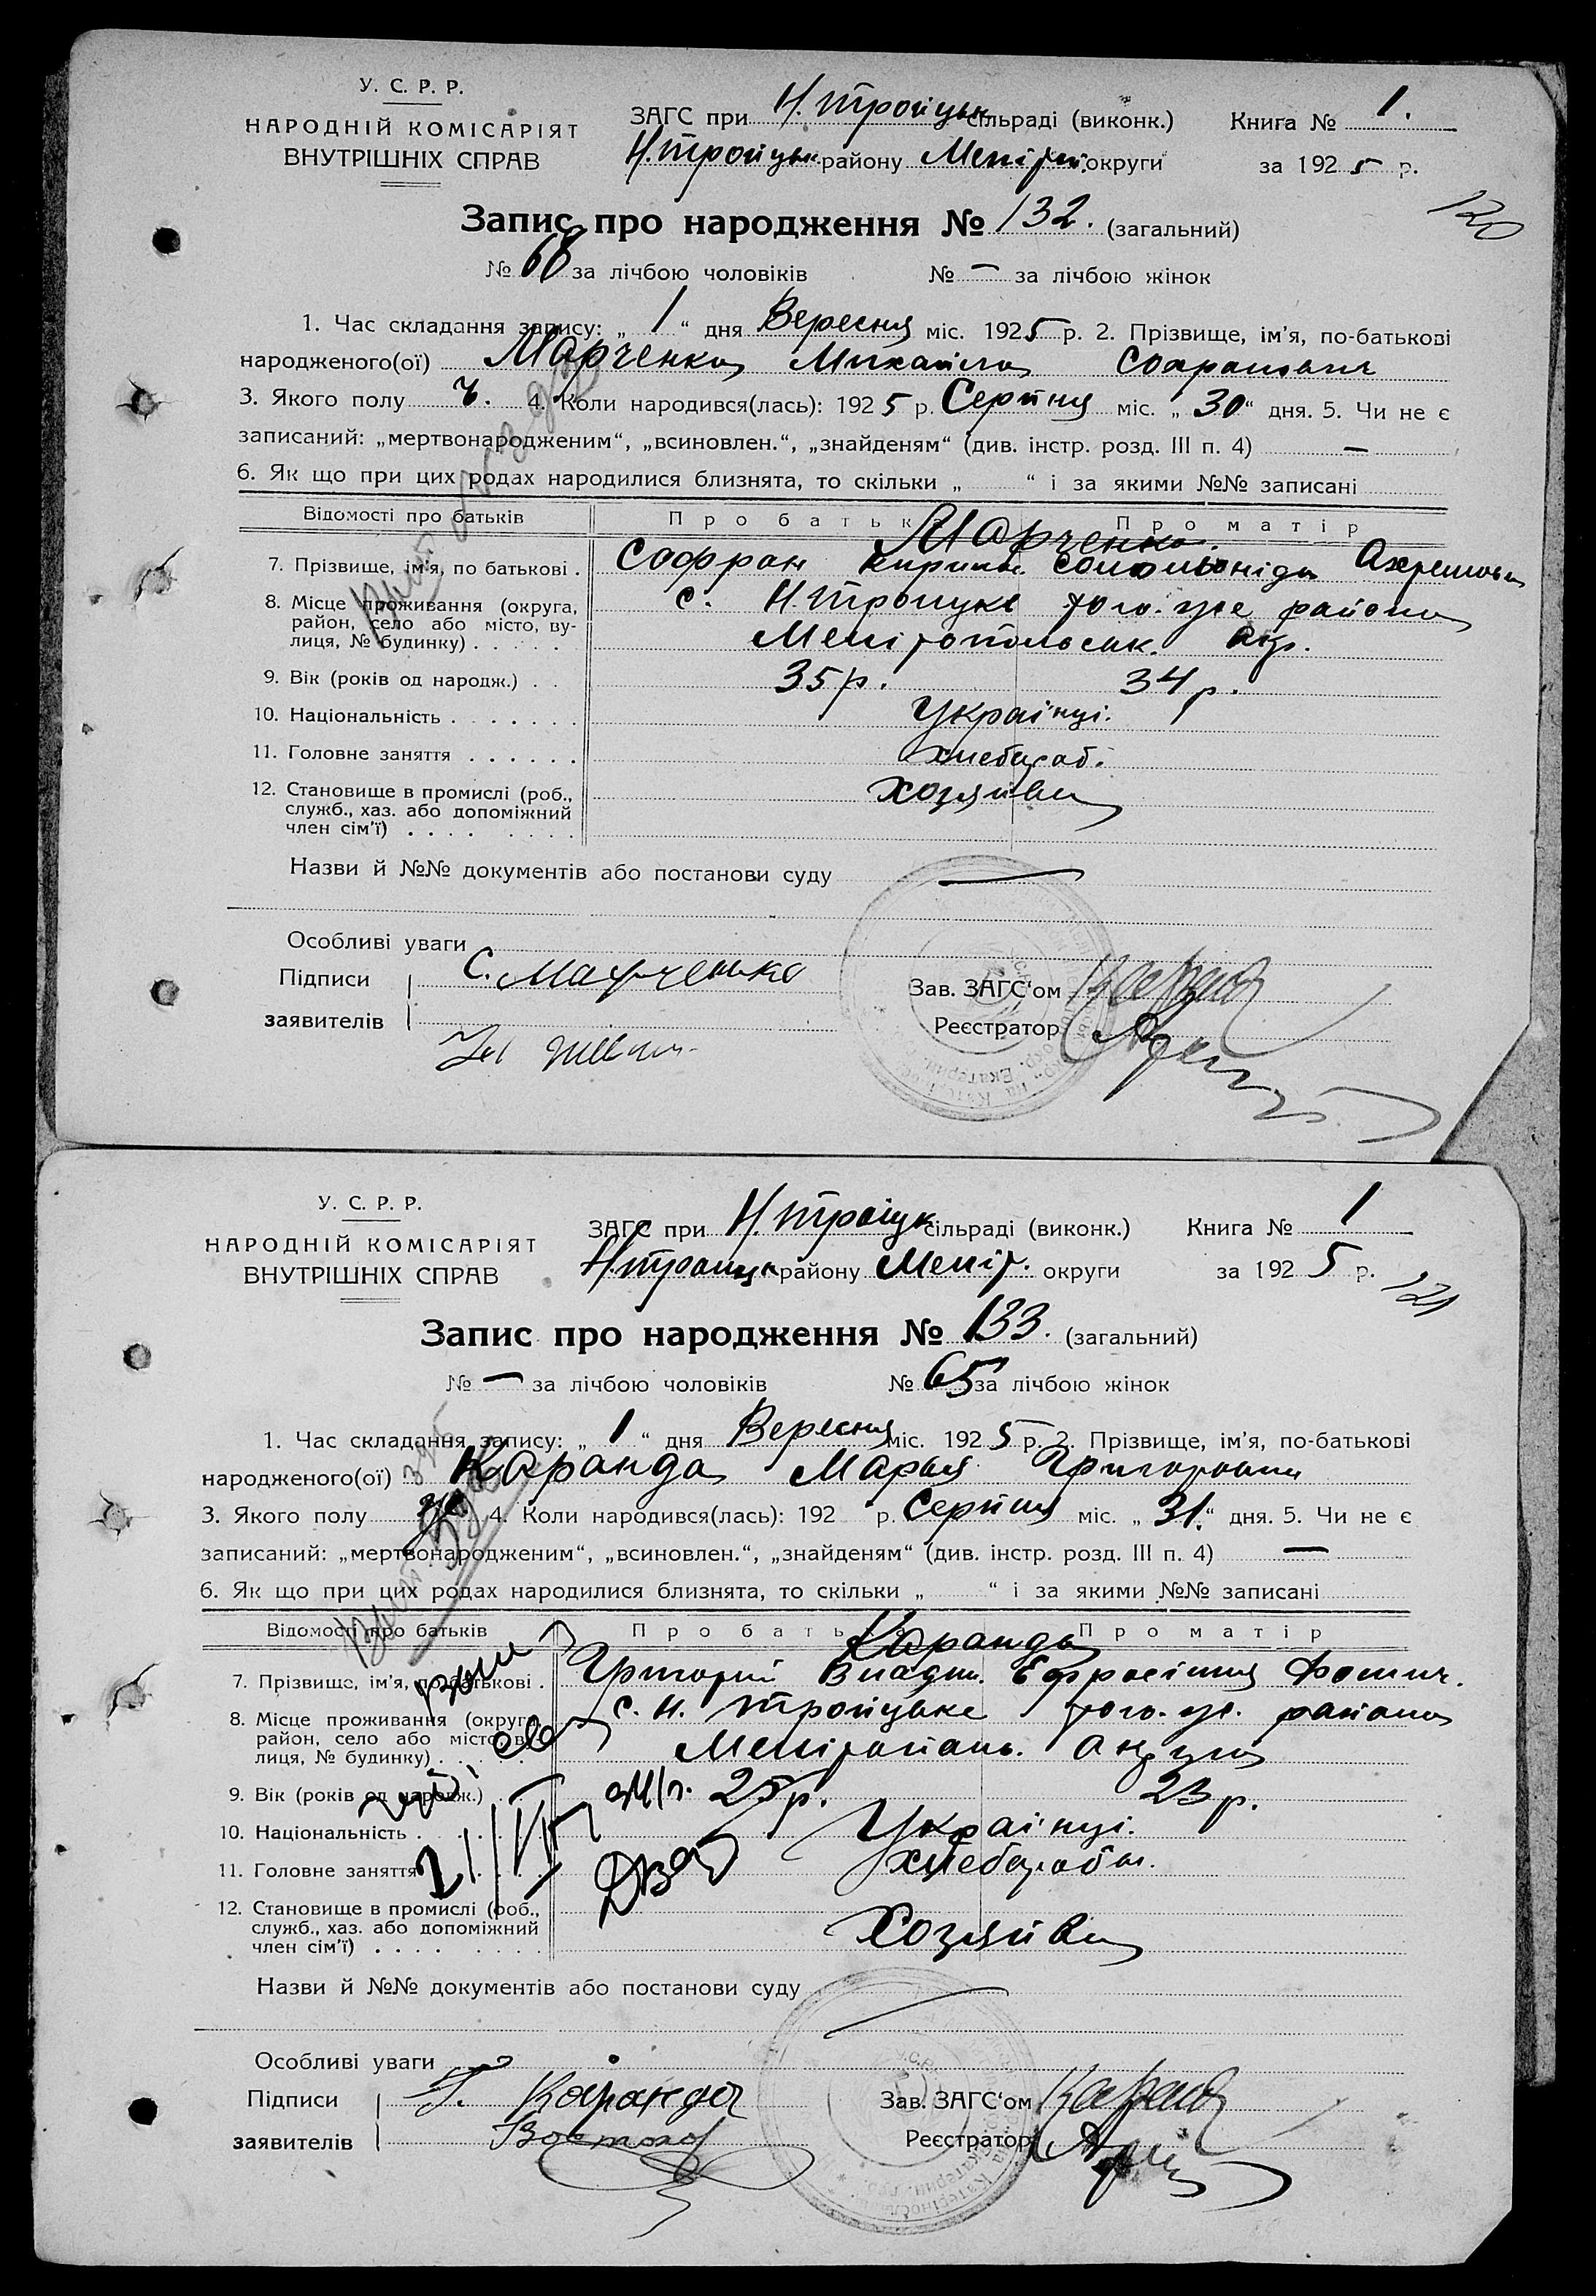 У. С. Р. Р.
НАРОДНІЙ КОМІСАРІЯТ
ВНУТРІШНІХ СПРАВ
ЗАГС при Н. Тройцьк сільраді (виконк.) Книга № 1.
Н. Тройцьк району Меліт. округи за 1925 р.
120
Запис про народження № 132. (загальний)
№ 68 за лічбою чоловіків № — за лічбою жінок
1. Час складання запису: „ 1 “ дня Вересня міс. 1925 р. 2. Прізвище, ім'я, по-батькові
народженого(ої) Марченко Михайло
3. Якого полу ч. 4. Коли народився(лась): 1925 р. Серпня міс. „ 30 “ дня. 5. Чи не є
записаний: „мертвонародженим“, „всиновлен.“, „знайденям“ (див. інстр. розд. III п. 4) —
6. Як що при цих родах народилися близнята, то скільки „ “ і за якими №№ записані
Відомості про батьків Про батька Про матір
Марченко
7. Прізвище, ім'я, по батькові . Софрон Кирил.
8. Місце проживання (округа, с. Н. Тройцьке того-же района
район, село або місто, ву-
лиця, № будинку) . . . . . Мелітопольськ. окр.
9. Вік (років од народж.) . . 35 р. 34 р.
10. Національність . . . . . . . Українці.
11. Головне заняття . . . . . . хлебороб.
12. Становище в промислі (роб., Хозяйва
служб., хаз. або допоміжний
член сім'ї) . . . . . . . .
Назви й №№ документів або постанови суду —
Особливі уваги
Підписи С. Марченко
заявителів
Зав. ЗАГС'ом
Реєстратор
У. С. Р. Р.
НАРОДНІЙ КОМІСАРІЯТ
ВНУТРІШНІХ СПРАВ
ЗАГС при Н. Троіцк сільраді (виконк.) Книга № 1
Н. Троицк району Меліт. округи за 1925 р.
121
Запис про народження № 133. (загальний)
№ — за лічбою чоловіків № 65 за лічбою жінок
1. Час складання запису: „ 1 “ дня Вересня міс. 1925 р. 2. Прізвище, ім'я, по-батькові
народженого(ої) Каранда Марья Григоровна
3. Якого полу ж 4. Коли народився(лась): 192 р. Серпня міс. „ 31. “ дня. 5. Чи не є
записаний: „мертвонародженим“, „всиновлен.“, „знайденям“ (див. інстр. розд. III п. 4) —
6. Як що при цих родах народилися близнята, то скільки „ “ і за якими №№ записані
Відомості про батьків Про батька Про матір
Каранда
7. Прізвище, ім'я, по батькові . Григорій Владим. Ефросіния Фомин.
8. Місце проживання (округа, с. Н. Тройцьке того-же района
район, село або місто, ву-
лиця, № будинку) . . . . Мелітополь. округа
9. Вік (років од народж.) . . 25 р. 23 р.
10. Національність . . . . . Українці.
11. Головне заняття . . . . . хлебороби.
12. Становище в промислі (роб., Хозяйва
служб., хаз. або допоміжний
член сім'ї) . . . . . . . .
Назви й №№ документів або постанови суду —
Особливі уваги
Підписи Г. Каранда
заявителів
Зав. ЗАГС'ом
Реєстратор